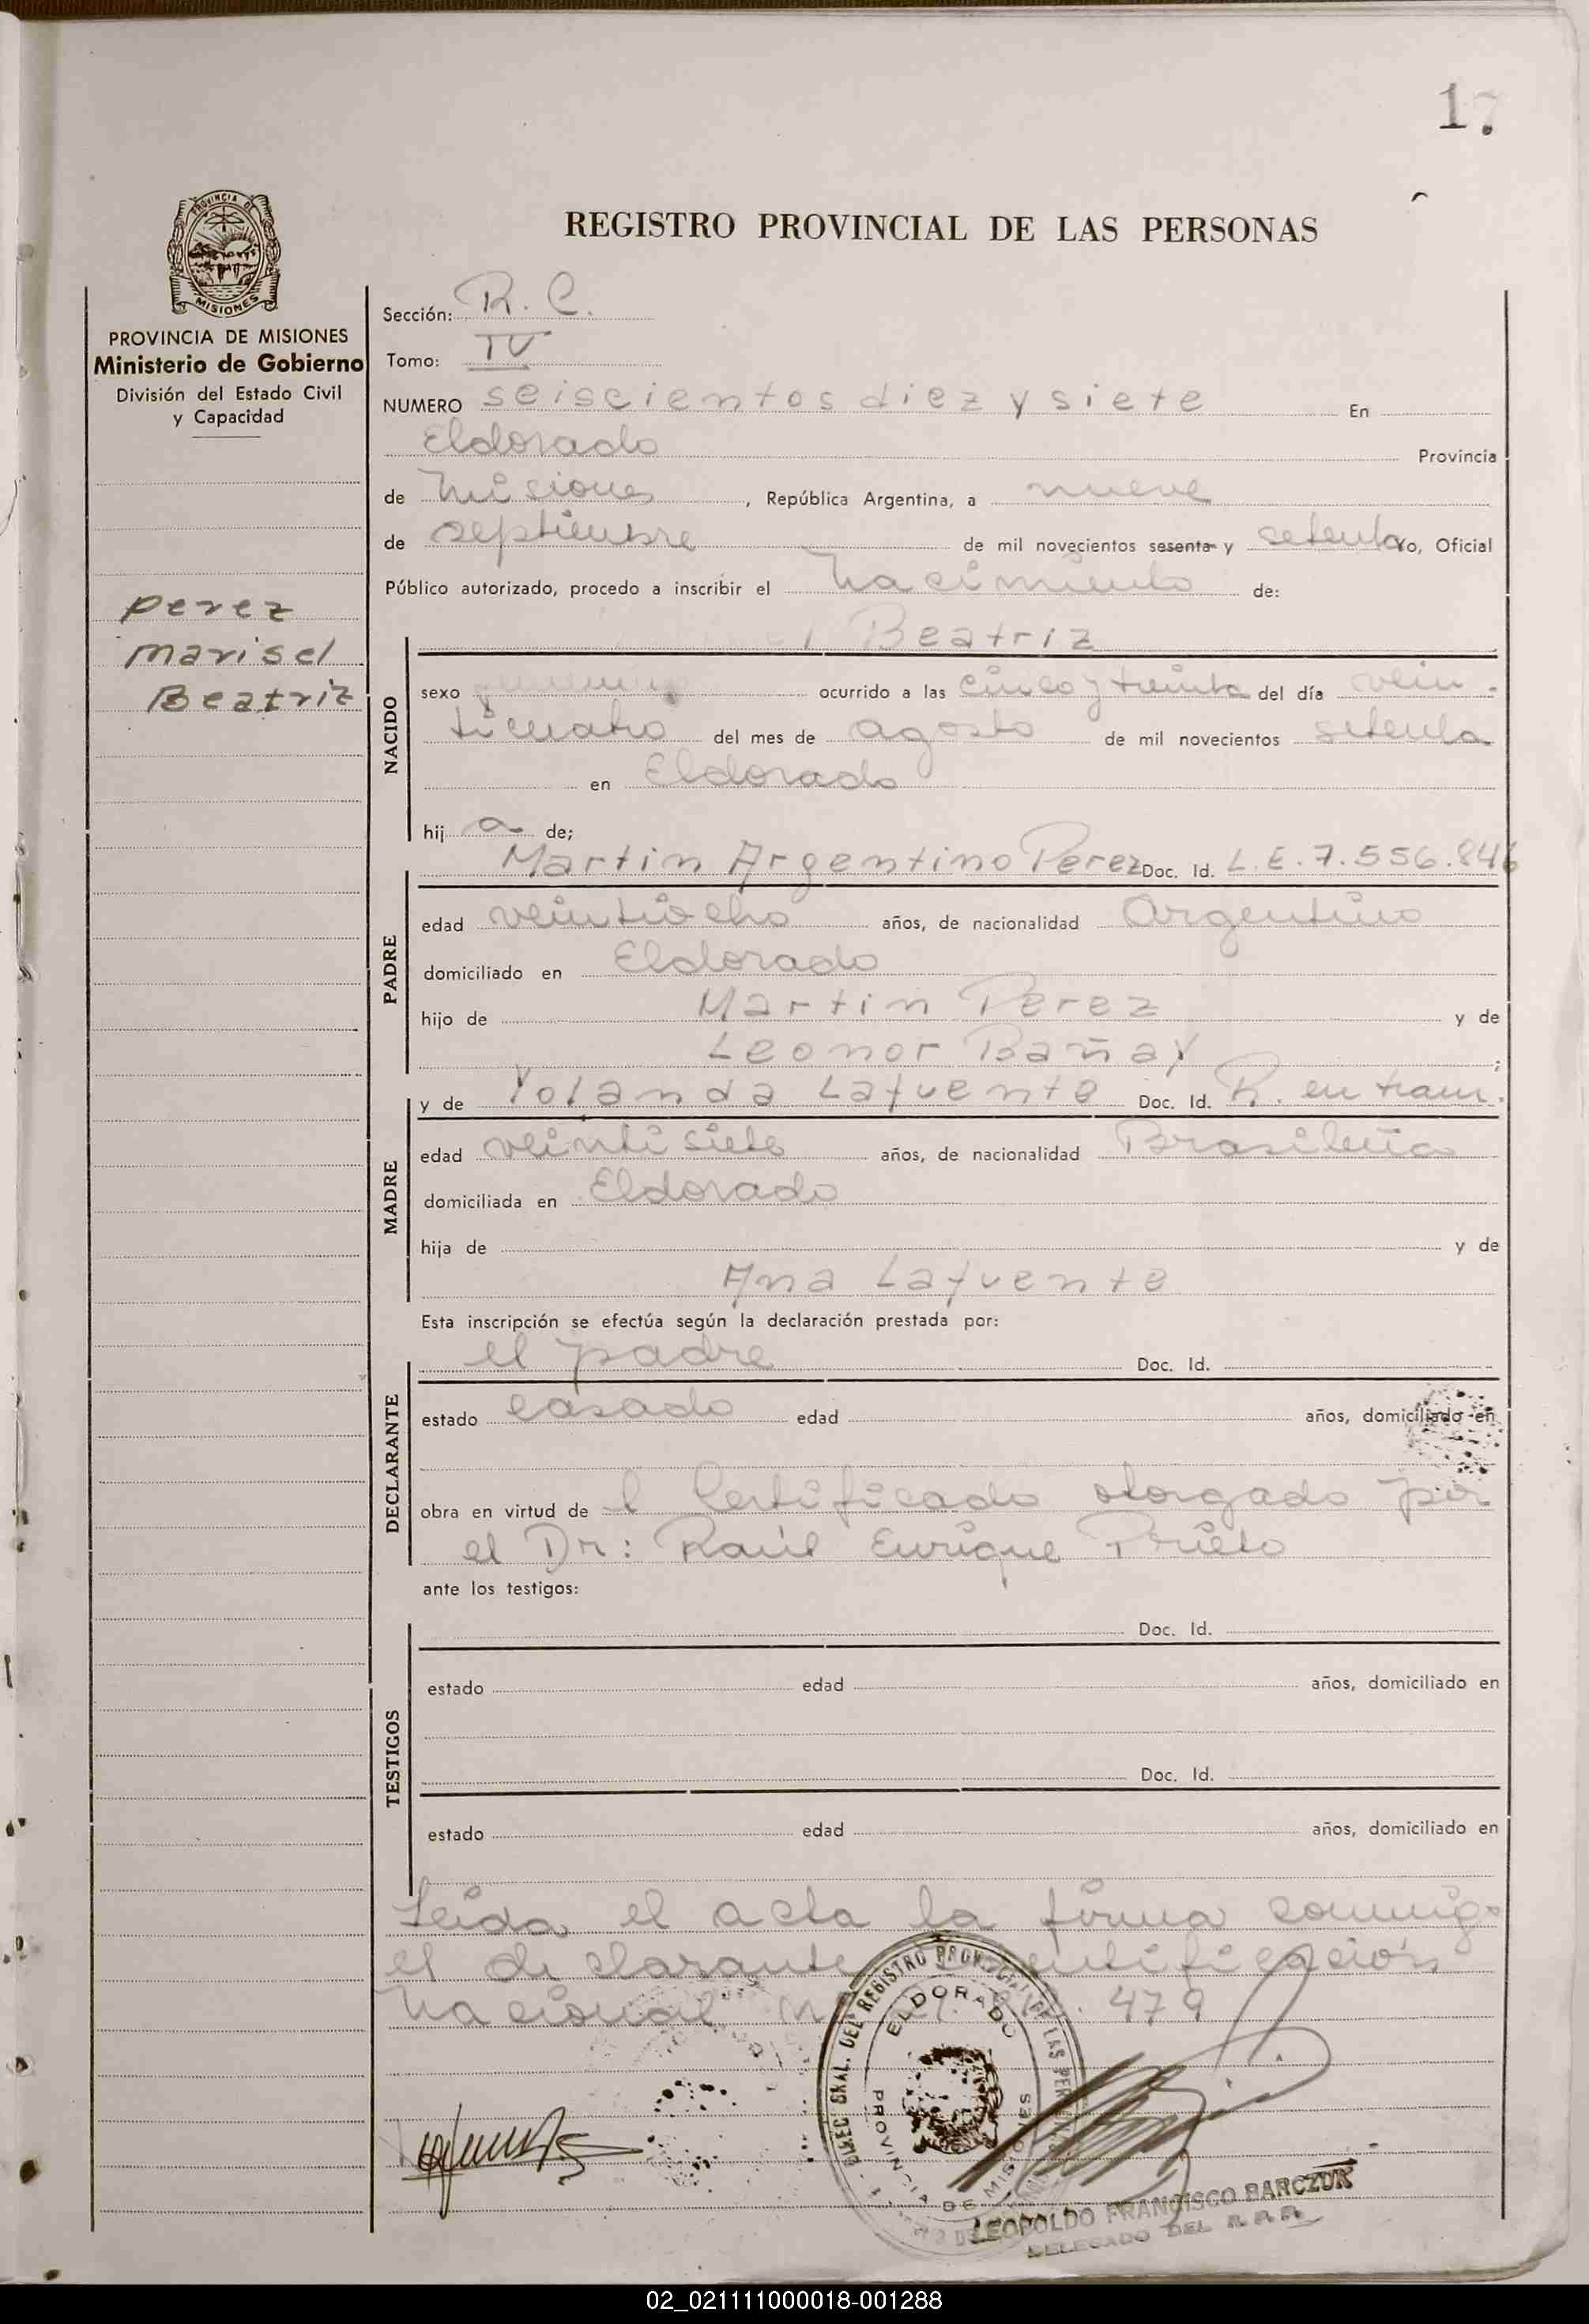 17
REGISTRO PROVINCIAL DE LAS PERSONAS
PROVINCIA DE MISIONES
PROVINCIA DE MISIONES
Ministerio de Gobierno
División del Estado Civil
y Capacidad
Perez
Marisel
Beatriz
Sección: R. C.
Tomo: IV
NUMERO seiscientos diez y siete En
Eldorado Provincia
de Misiones, República Argentina, a nueve
de septiembre de mil novecientos sesenta y setenta yo, Oficial
Público autorizado, procedo a inscribir el Nacimiento de:
l Beatriz
NACIDO
sexo femenino ocurrido a las cinco y treinta del día vein-
ticuatro del mes de agosto de mil novecientos setenta
en Eldorado
hij a de;
Martin Argentino Perez Doc. Id. L.E. 7.556.846
PADRE
edad veintiocho años, de nacionalidad Argentino
domiciliado en Eldorado
hijo de Martin Perez y de
Leonor Bañay;
y de Yolanda Lafuente Doc. Id. R. en tram.
MADRE
edad veintisiete años, de nacionalidad Brasileña
domiciliada en Eldorado
hija de y de
Ana Lafuente
Esta inscripción se efectúa según la declaración prestada por:
el padre Doc. Id.
DECLARANTE
estado casado edad años, domiciliado en
obra en virtud de l Certificado otorgado por
el Dr: Raúl Enrique Prieto
ante los testigos:
TESTIGOS
Doc. Id.
estado edad años, domiciliado en
Doc. Id.
estado edad años, domiciliado en
Leida el acta la firma conmigo
el declarante
Nacional 479
DIREC. GRAL. DEL REGISTRO PROVINCIAL DE LAS PERSONAS
ELDORADO
PROVINCIA DE MISIONES
LEOPOLDO FRANCISCO BARCZUK
DELEGADO DEL R.P.P.
02_021111000018-001288